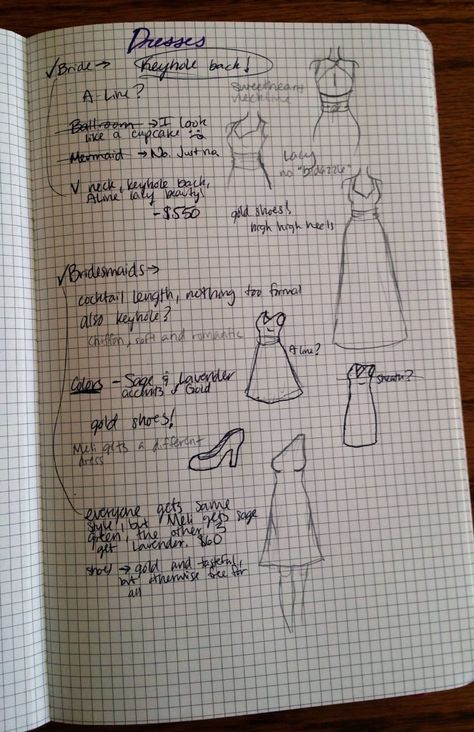 Dresses
✓ Bride → Keyhole back!
A Line?
Sweetheart
neckline
Ballroom → I look
like a cupcake
Mermaid → No. Just no
Lacy
no "bedazzle"
V neck, keyhole back,
A line lacy beauty!
- $550
gold shoes!
high high heels
✓ Bridesmaids →
cocktail length, nothing too formal
also keyhole?
chiffon, soft and romantic
A line?
Sheath?
Colors - Sage & Lavender
accents of Gold
gold shoes!
Meli gets a different
dress
everyone gets same
style, but Meli gets sage
green, the other 3
get Lavender. $60
shoes → gold and tasteful,
but otherwise free for
all